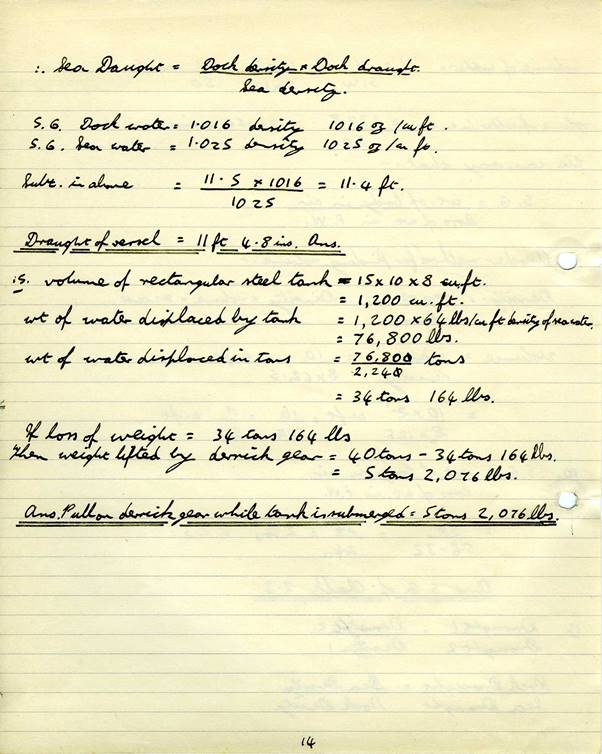 ∴ Sea Daught = Dock density × Dock draught.
Sea density.
S.G. Dock water = 1·016 density 1016 oz /cu ft.
S.G. Sea water = 1·025 density 1025 oz/cu ft.
Subt. in above = 11·5 × 1016 = 11·4 ft.
1025
Draught of vessel = 11 ft 4·8 ins. Ans.
volume of rectangular steel tank = 15 × 10 × 8 cu.ft.
= 1,200 cu. ft.
wt of water displaced by tank = 1,200 × 64 lbs/cu ft density of sea water.
= 76,800 lbs.
wt of water displaced in tons = 76,800 tons
2,240
= 34 tons 164 lbs.
If loss of weight = 34 tons 164 lbs
Then weight lifted by derrick gear = 40 tons - 34 tons 164 lbs.
= 5 tons 2,076 lbs.
Ans. Pull on derrick gear while tank is submerged = 5 tons 2,076 lbs.
14